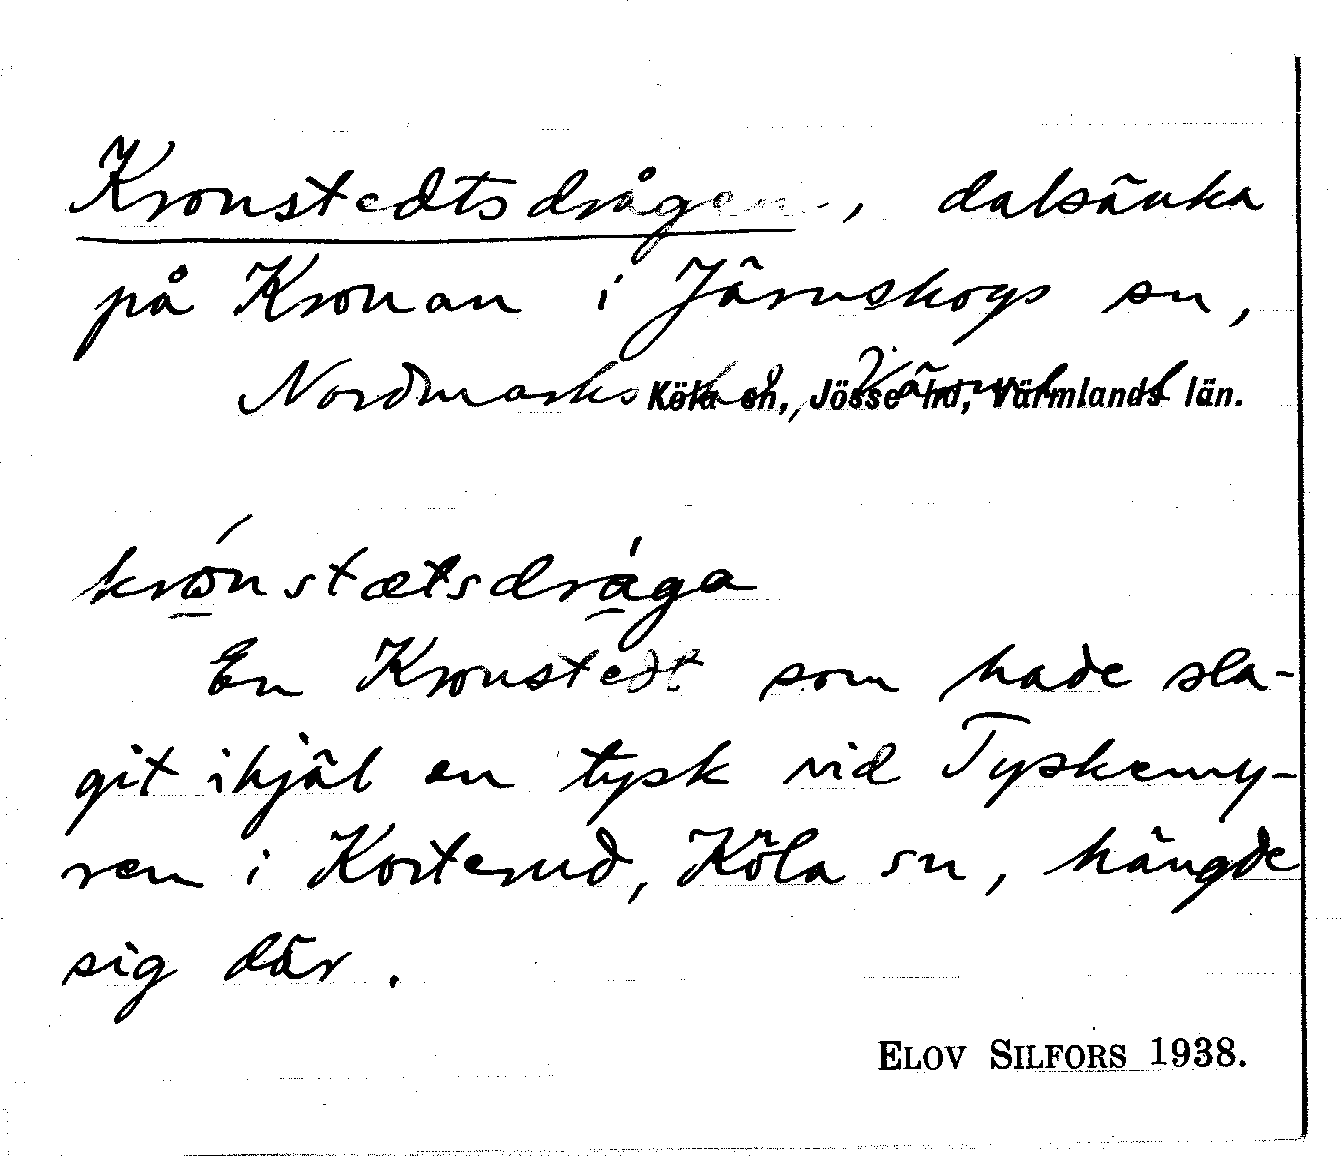 Kronstedtsdrågen, dalsänka
på Kronan i Järnskogs sn,
Nordmarks hd, Värml. l
Köla sn, Jösse hd, Värmlands län.
krónstætsdrága
En Kronstedt som hade sla-
git ihjäl en tysk vid Tyskemy-
ren i Korterud, Köla sn, hängde
sig där.
ELOV SILFORS 1938.